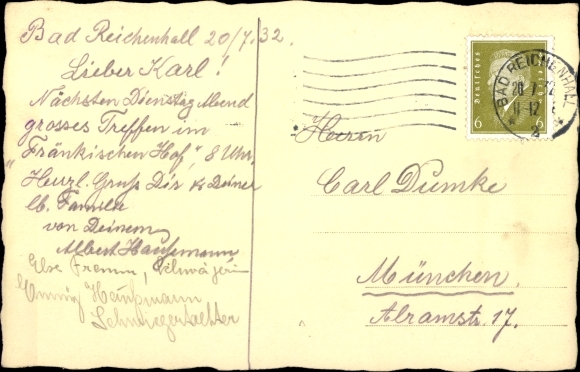 Bad Reichenhall 20/7.32.
Lieber Karl!
Nächsten Dienstag Abend
grosses Treffen im
"Fränkischen Hof", 8 Uhr.
Herzl. Gruss Dir & Deiner
lb. Familie
von Deinem
Albert
Else Fromm, Schwägerin
Schwiegertochter
Deutsches Reich
6 6
BAD REICHENHALL
20.7.32
11-12
Herrn
Carl Dumke
München.
Alramstr. 17.